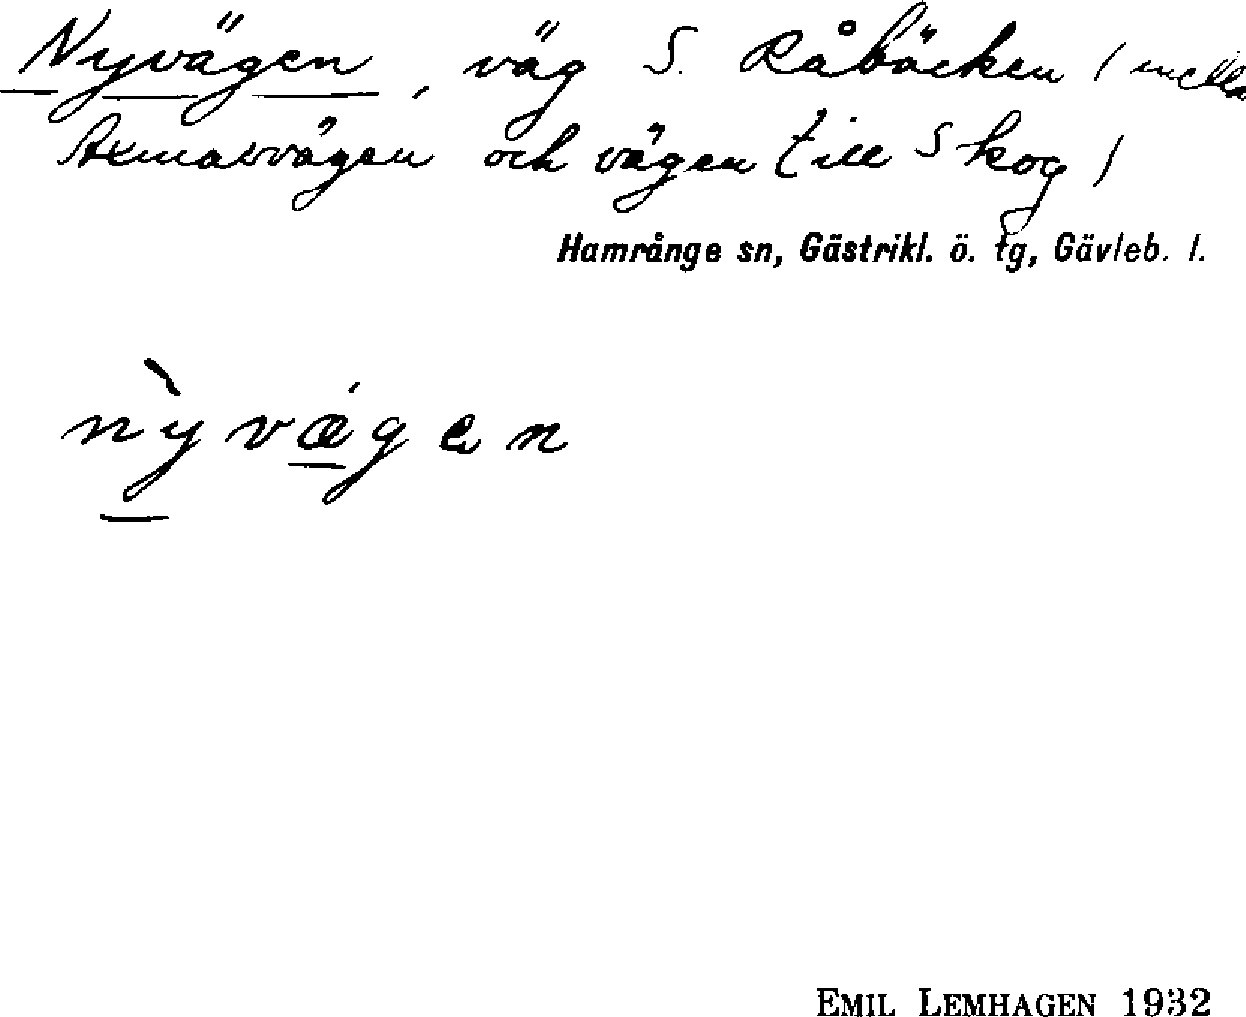 Nyvägen, väg S. Råbäcken / mella
Axmarvägen och vägen till Skog /
Hamrånge sn, Gästrikl. ö. tg, Gävleb. l.
nỳvǽgen
EMIL LEMHAGEN 1932